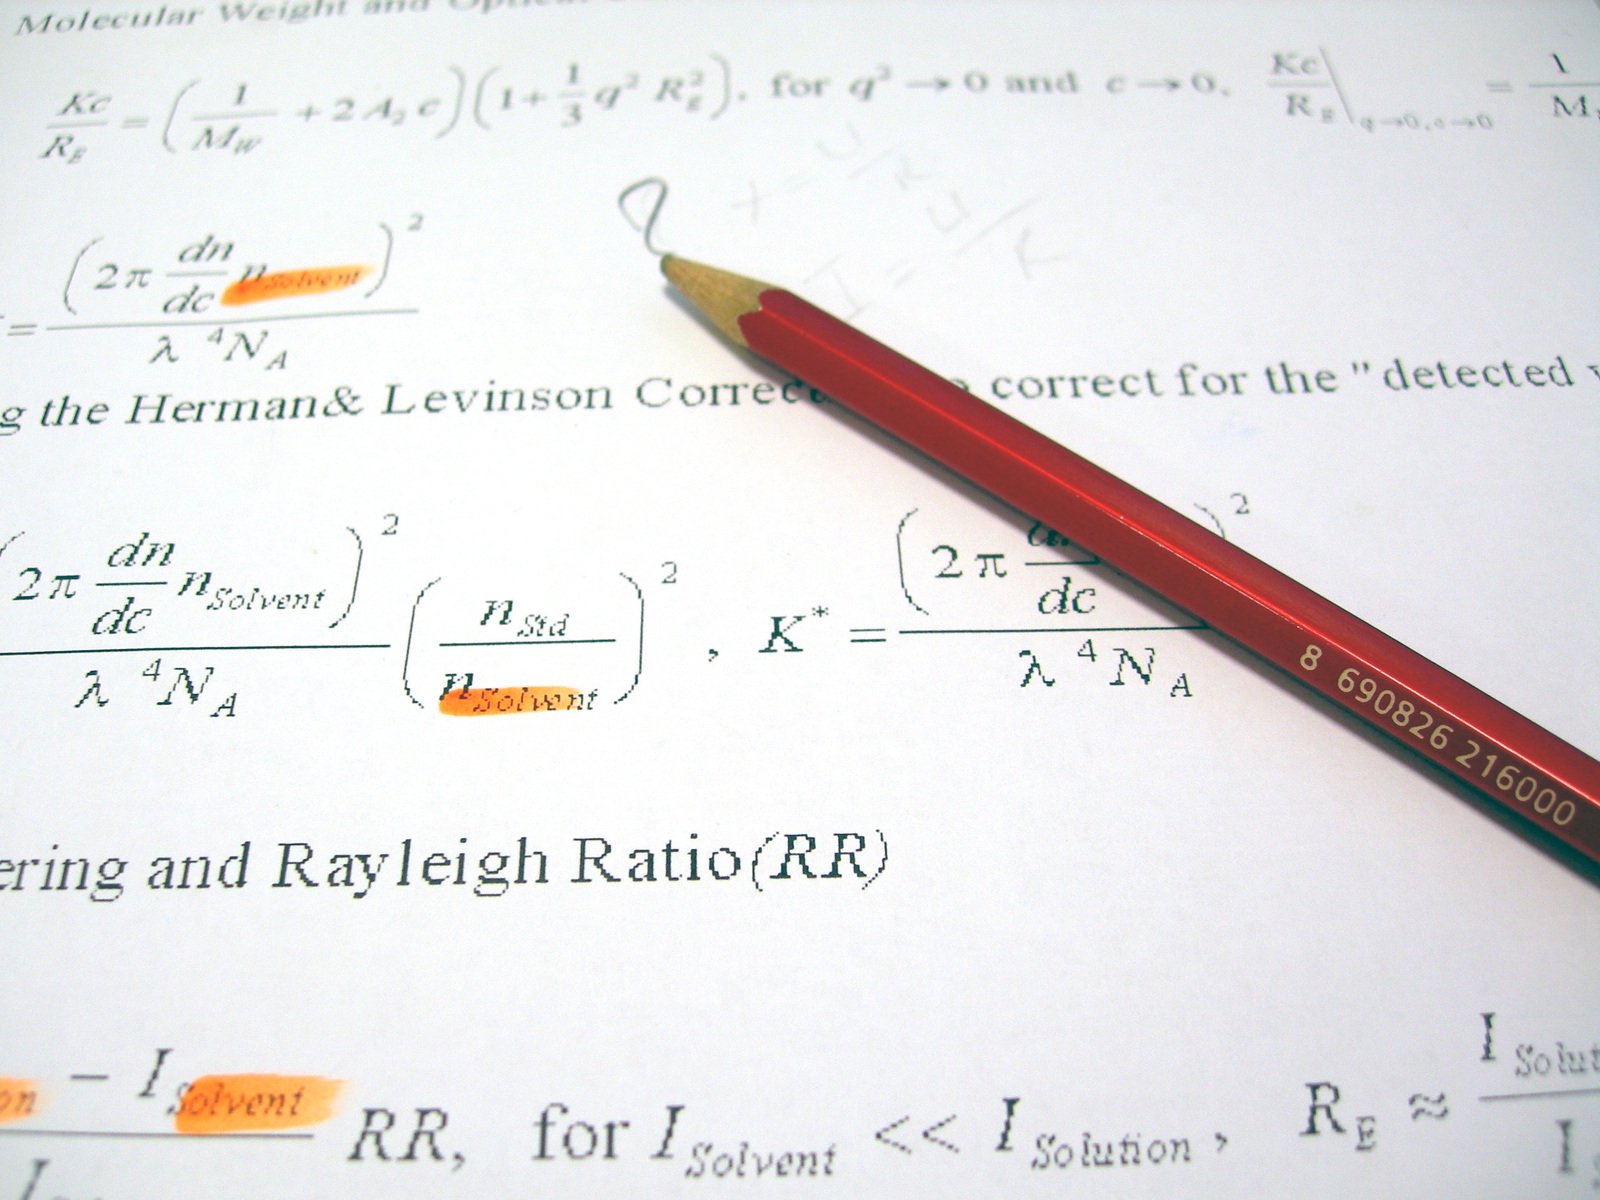 Molecular Weight and Optical
Kc/R_E = (1/M_W + 2 A_2 c)(1 + 1/3 q^2 R_g^2), for q^2 → 0 and c → 0, Kc/R_E |_{q→0, c→0} = 1/M
= (2π dn/dc n_Solvent)^2 / λ^4 N_A
g the Herman& Levinson correct for the "detected
(2π dn/dc n_Solvent)^2 / λ^4 N_A (n_Std / n_Solvent)^2 , K* = (2π /dc )^2 / λ^4 N_A
8 690826 216000
ering and Rayleigh Ratio(RR)
on - I_Solvent / I RR, for I_Solvent << I_Solution , R_E ≈ I_Solut / I